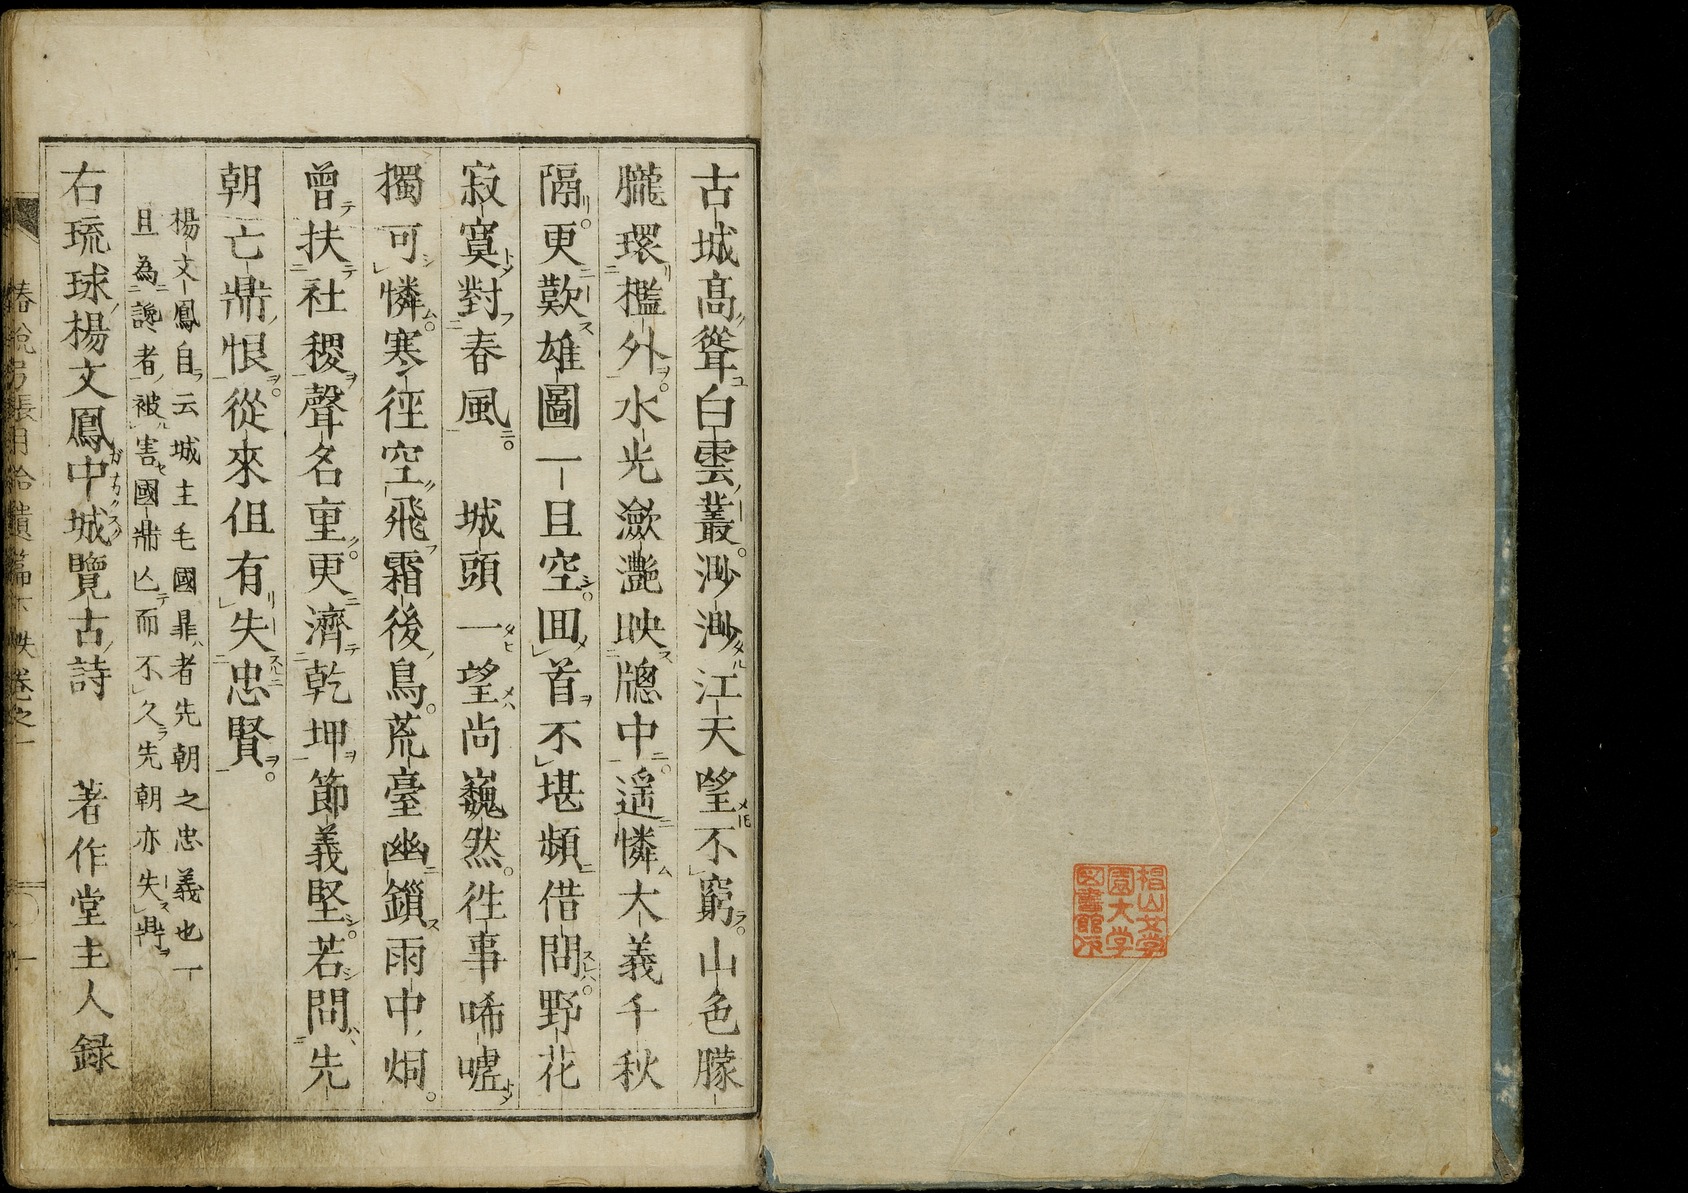 古城高聳白雲叢渺渺江天望不窮山色朦
朧環檻外水光瀲灩映牎中遥憐大義千秋
隔更歎雄圖一旦空囬首不堪頻借問野花
寂寞對春風　城頭一望尚巍然徃事唏嘘
獨可憐寒徃空飛霜後鳥荒臺幽鎖雨中烟
曾扶社稷聲名重更濟乾坤節義堅若問先
朝亡鼎恨從來伹有失忠賢
楊文鳳自云城主毛國鼎者先朝之忠義也一
且為讒者被害國鼎亾而不久先朝亦失鼎
右琉球楊文鳳中城覽古詩　著作堂主人録
椿説弓張月拾遺篇下帙卷之一
椙山女学
園大学
図書館印